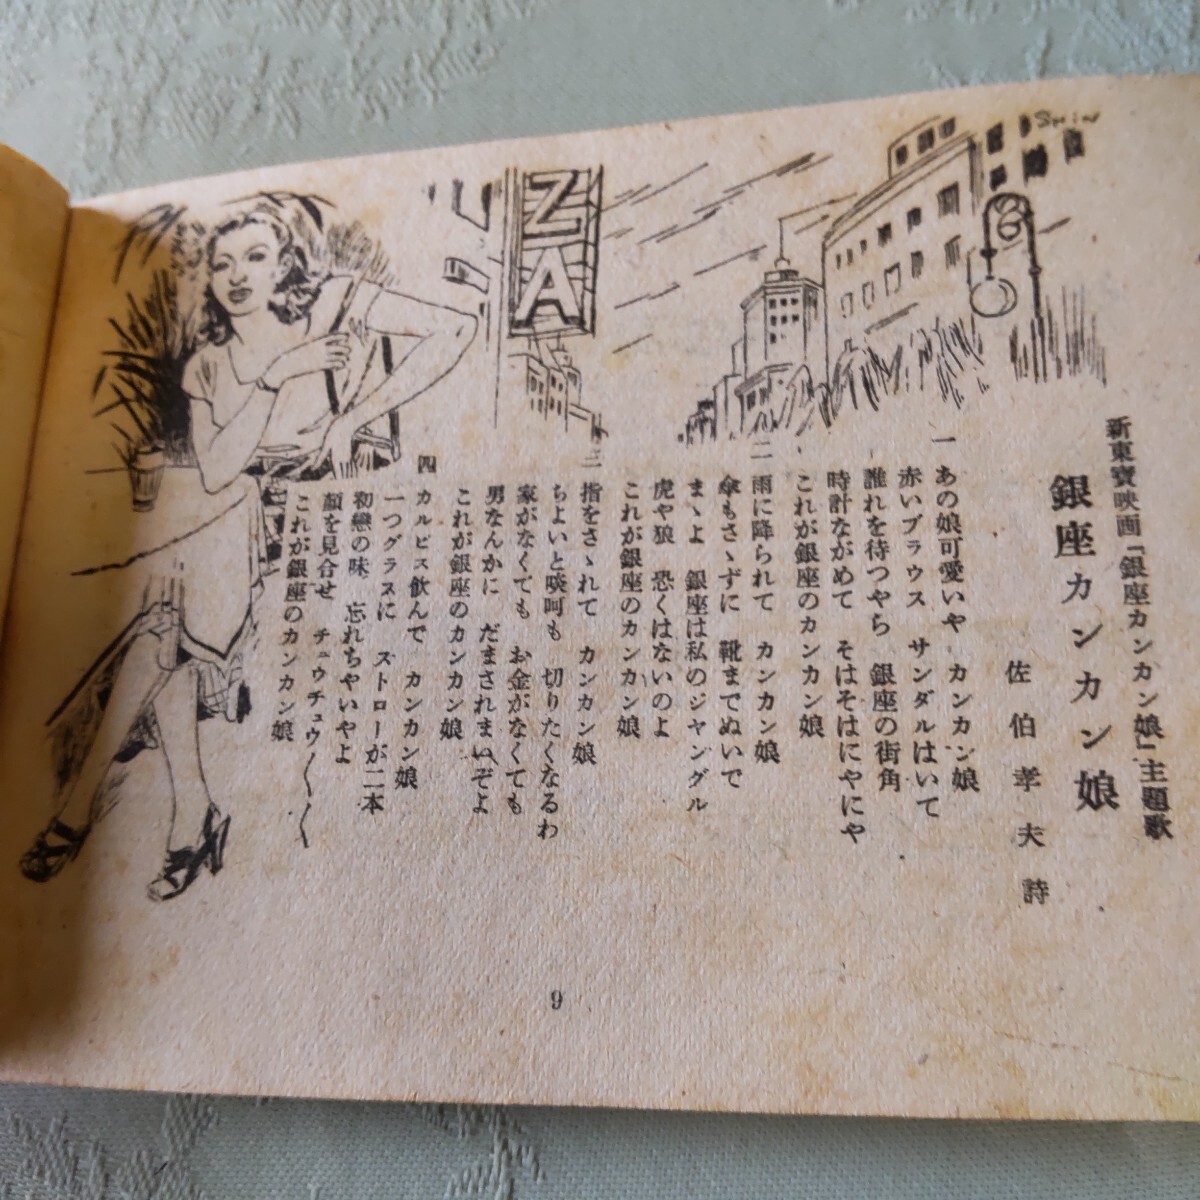 新東寶映画「銀座カンカン娘」主題歌
銀座カンカン娘
佐伯孝夫詩
一 あの娘可愛いや カンカン娘
赤いブラウス サンダルはいて
誰れを待つやら 銀座の街角
時計ながめて そはそはにやにや
これが銀座のカンカン娘
二 雨に降られて カンカン娘
傘もさゝずに 靴までぬいで
まゝよ 銀座は私のジャングル
虎や狼 恐くはないのよ
これが銀座のカンカン娘
三 指をさゝれて カンカン娘
ちよいと啖呵も 切りたくなるわ
家がなくても お金がなくても
男なんかに だまされまいぞよ
これが銀座のカンカン娘
四 カルピス飲んで カンカン娘
一つグラスに ストローが二本
初戀の味 忘れちやいやよ
顔を見合せ チュウチュウ〱〱
これが銀座のカンカン娘
ZA
9